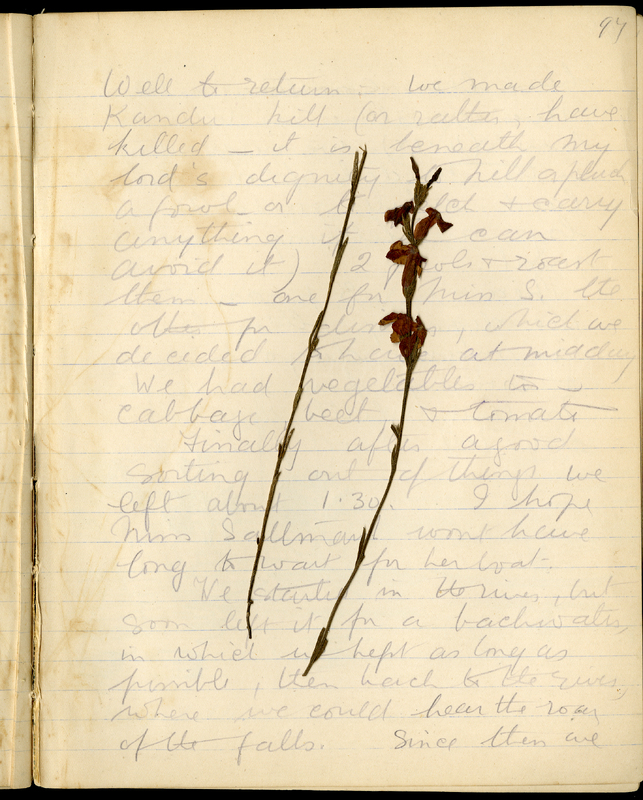 97
Well to return. we made
Kandu kill (or rather, have
killed – it is beneath my
lord's dignity kill & pluck
a fowl – or & carry
anything if can
avoid it) 2 fowls & roast
them – one for Miss S. the
other for dinner, which we
decided to have at midday
We had vegetables too –
cabbage beet & tomato
Finally after a good
sorting out of things we
left about 1.30. I hope
Miss Sallman wont have
long to wait for her boat.
We started in the river, but
soon left it for a backwater,
in which we kept as long as
possible, then back to the river,
where we could hear the roar
of the falls. Since then we